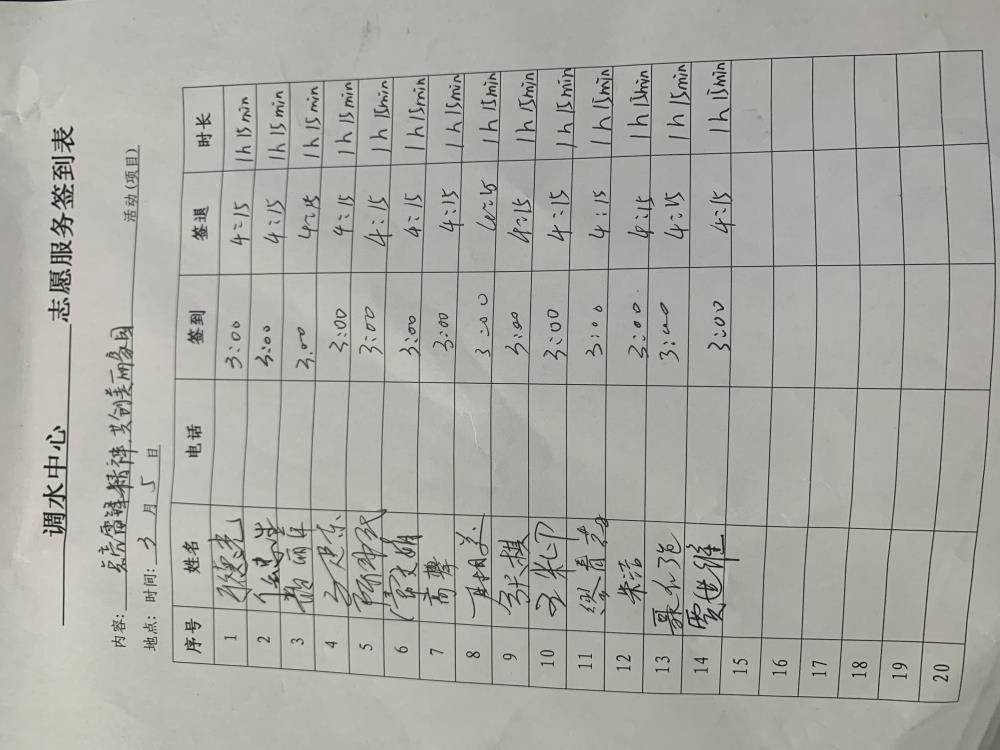 调水中心 志愿服务签到表
内容: 点亮雷锋精神,共创美丽家园 活动(项目)
地点: 时间: 3 月 5 日
序号 姓名 电话 签到 签退 时长
1 3:00 4:15 1h15min
2 3:00 4:15 1h15min
3 3:00 4:15 1h15min
4 3:00 4:15 1h15min
5 3:00 4:15 1h15min
6 3:00 4:15 1h15min
7 高攀 3:00 4:15 1h15min
8 3:00 4:15 1h15min
9 3:00 4:15 1h15min
10 3:00 4:15 1h15min
11 3:00 4:15 1h15min
12 朱洁 3:00 4:15 1h15min
13 3:00 4:15 1h15min
14 贾世维 3:00 4:15 1h15min
15
16
17
18
19
20